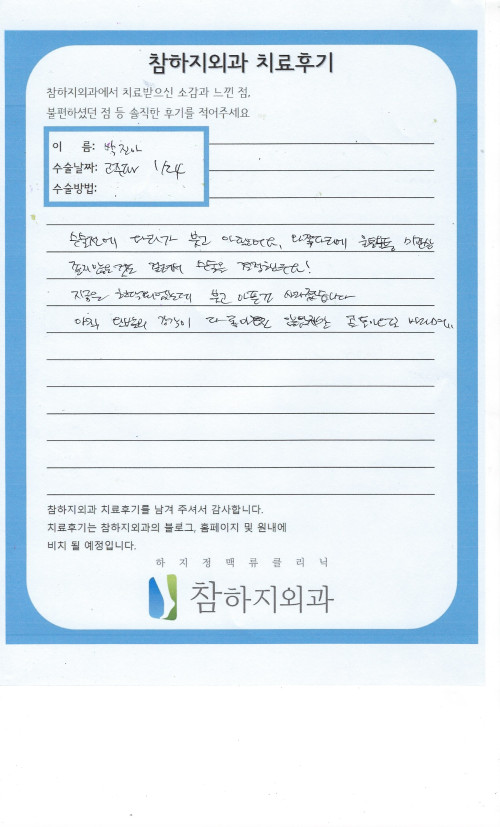 참하지외과 치료후기
참하지외과에서 치료받으신 소감과 느낀 점,
불편하셨던 점 등 솔직한 후기를 적어주세요
이 름: 박진아
수술날짜: 1/24
수술방법:
수술전에 다리가 붓고 아팠는데요, 왼쪽다리에 미관상
좋지않은 것도 수술을 결정했는데요!
지금은 한달되었는데 붓고 아픈건 사라졌습니다
아직 감각이 다 돌아오진 않았지만
참하지외과 치료후기를 남겨 주셔서 감사합니다.
치료후기는 참하지외과의 블로그, 홈페이지 및 원내에
비치 될 예정입니다.
하지정맥류클리닉
참하지외과